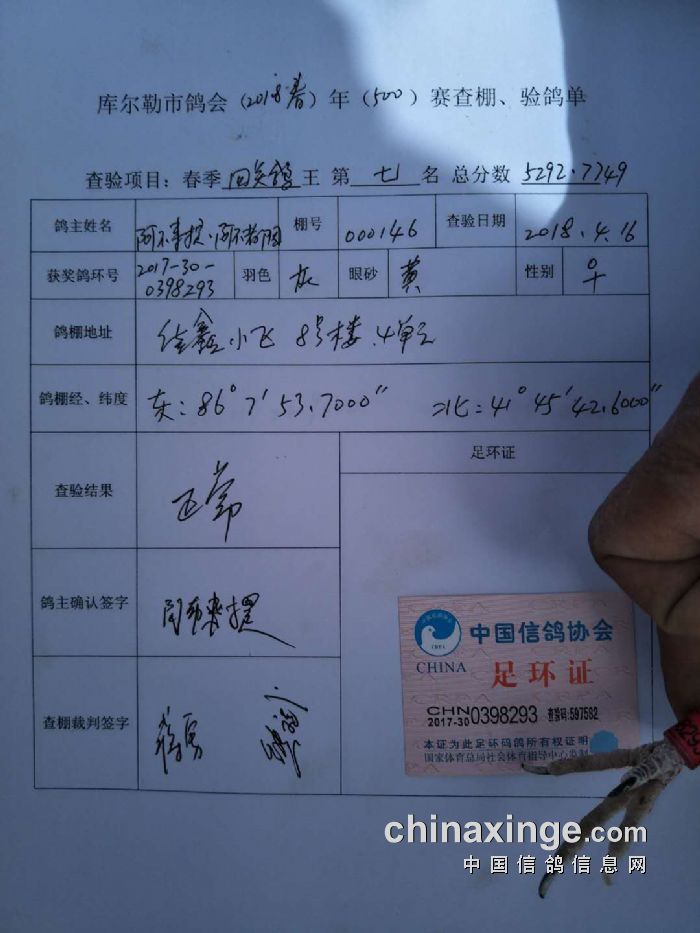 库尔勒市鸽会（2018春）年（500）赛查棚、验鸽单
查验项目：春季 回关鸽 王 第 七 名 总分数 5292.7749
鸽主姓名
棚号 000146 查验日期 2018.4.16
获奖鸽环号 2017-30-
0398293 羽色 灰 眼砂 黄 性别 ♀
鸽棚地址 佳鑫小飞 8号楼.4单元
鸽棚经、纬度 东：86°7′53.7000″ 北：41°45′42.6000″
查验结果 正常
足环证
鸽主确认签字
查棚裁判签字
中国信鸽协会
CHINA 足环证
CHN
2017-30 0398293 查验码:597582
本证为此足环码鸽所有权证明
国家体育总局社会体育指导中心监制
chinaxinge.com
中国信鸽信息网